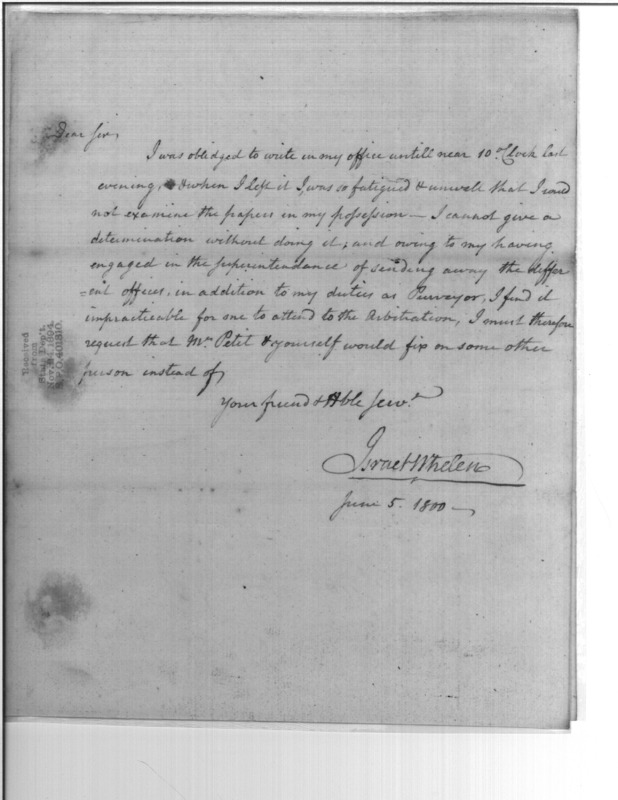 Dear Sir,
I was obledged to write in my office untill near 10 oClock last
evening, & when I left it I was so fatigued & unwell that I could
not examine the papers in my possession — I cannot give a
determination without doing it; and owing to my having
engaged in the superintendance of sending away the differ
=ent offices, in addition to my duties as Purveyor, I find it
impracticable for me to attend to the Arbitration, I must therefore
request that Mr Petit & yourself would fix on some other
person instead of
Your friend & Hble Servt
Israel Whelen
June 5. 1800
Received
from
State Dep't.
Nov. 1894.
R.P.O. 401810.